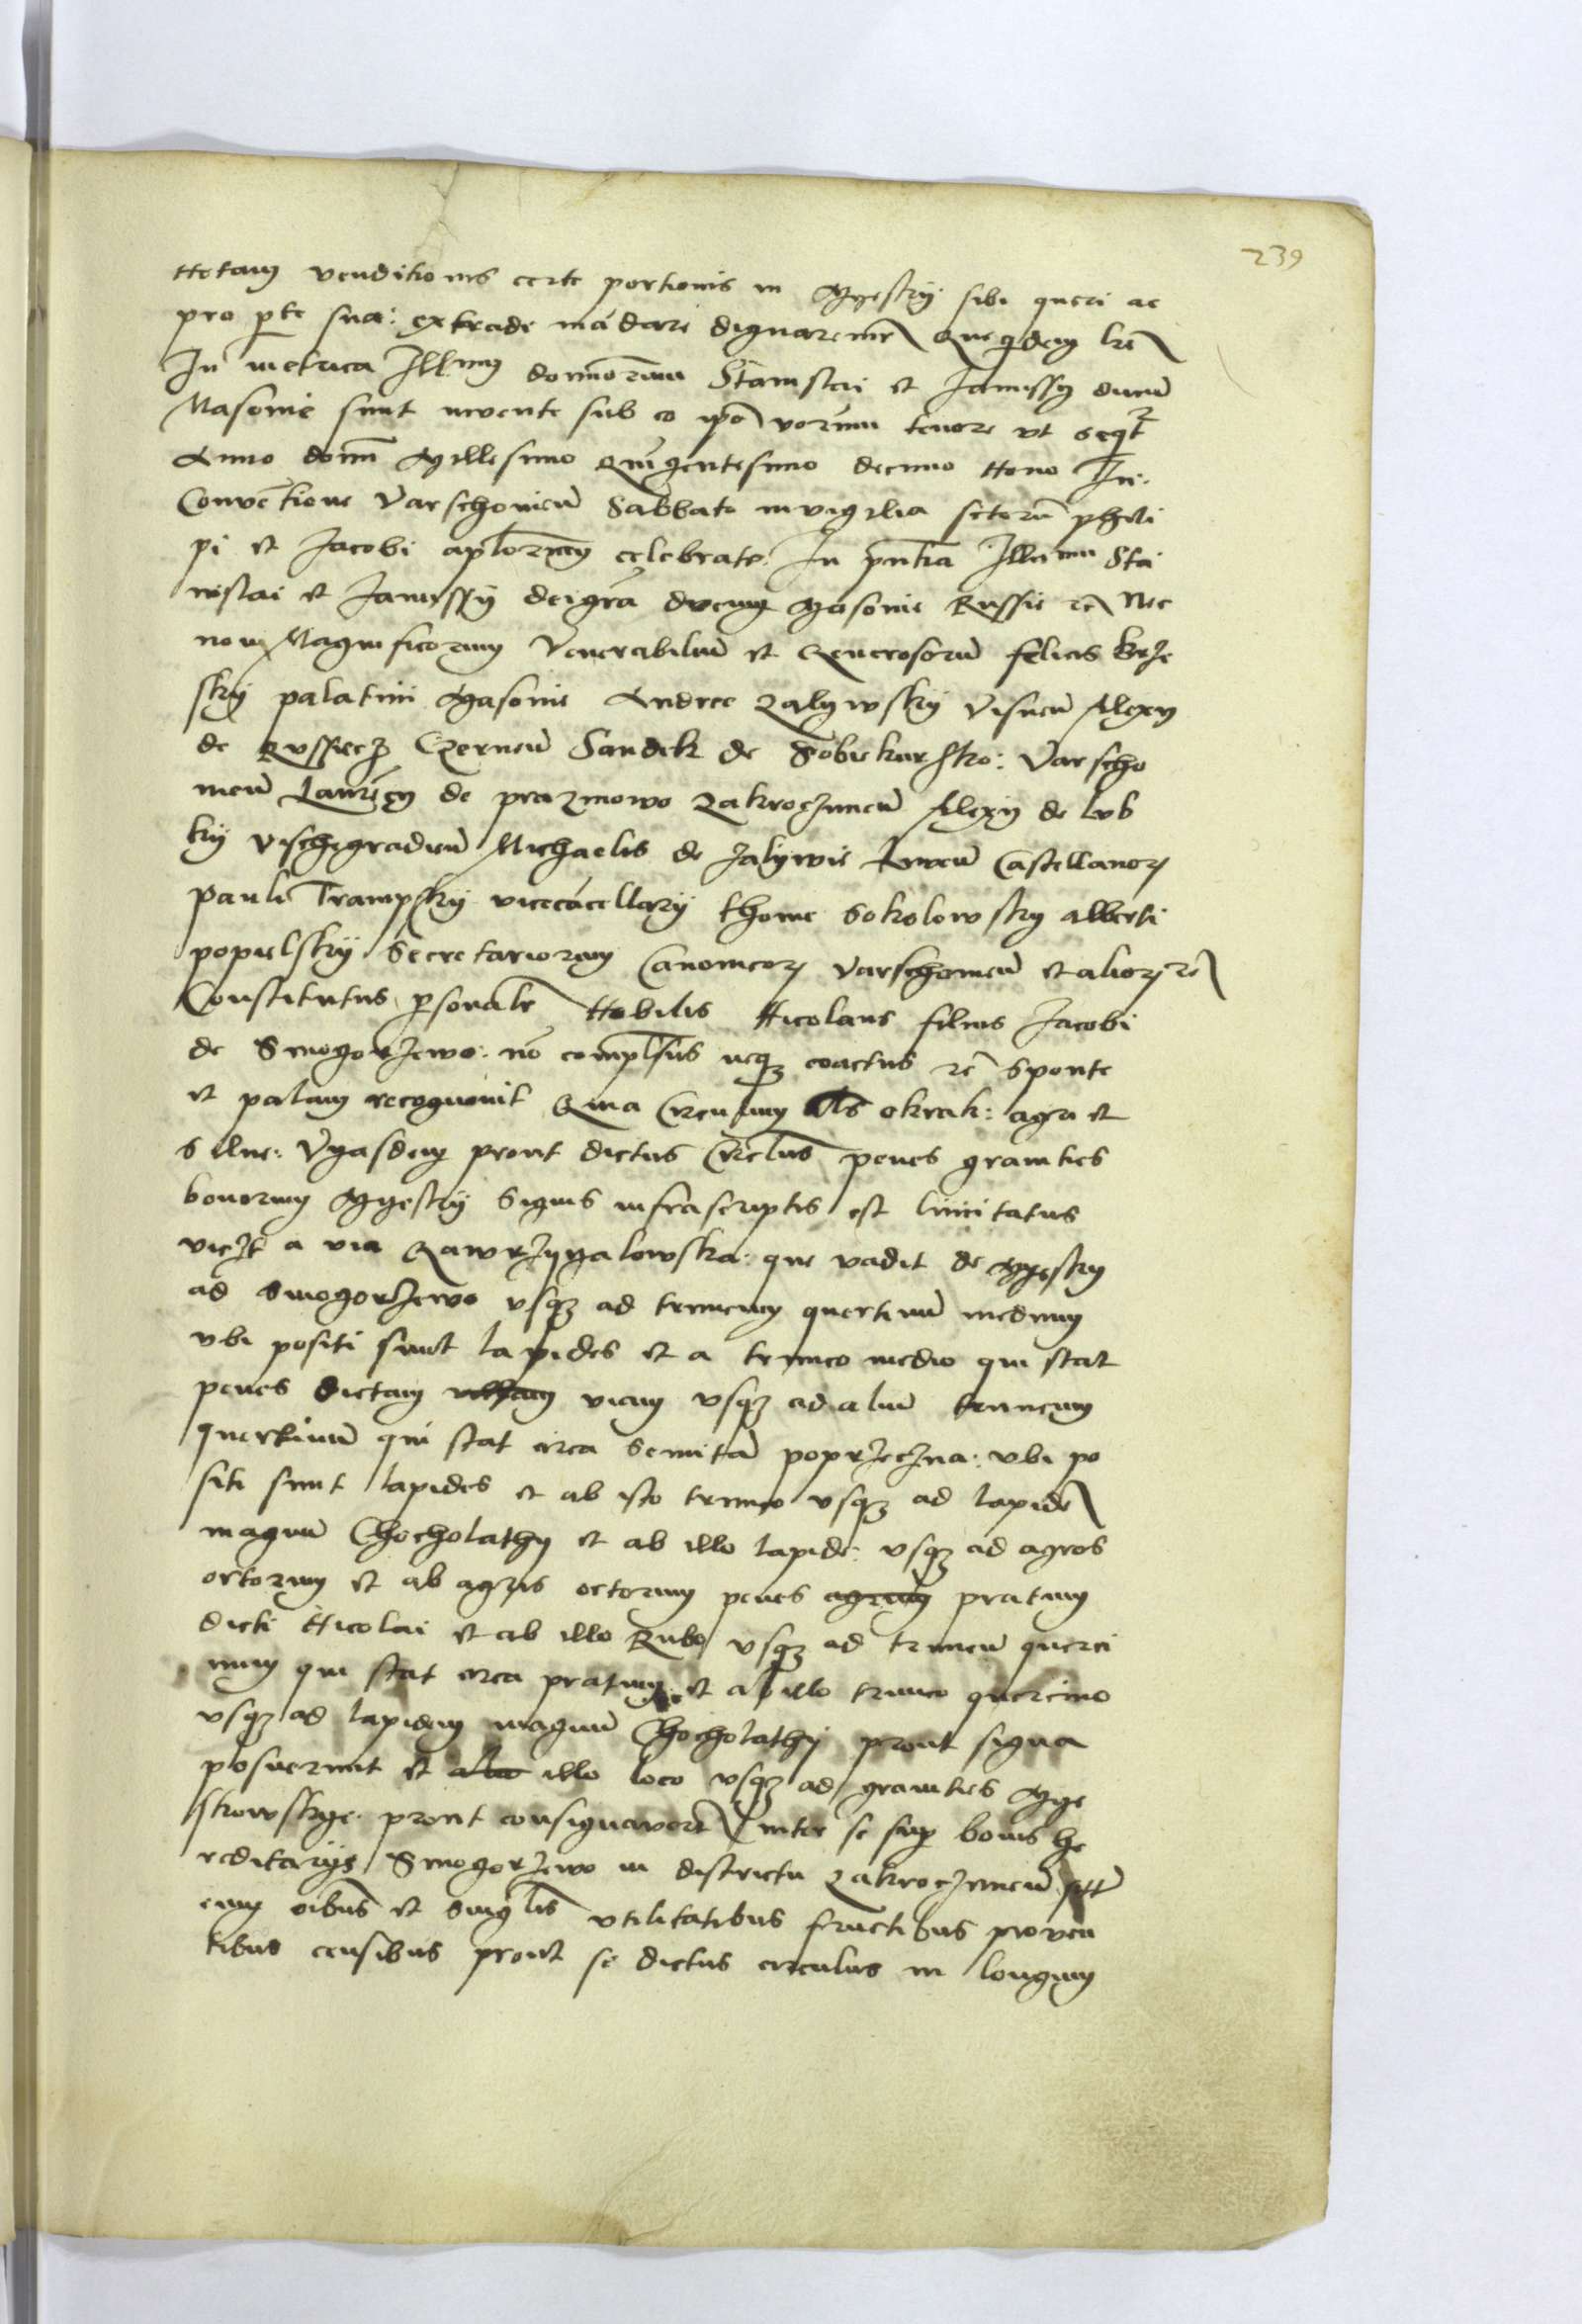 239
Notam venditionis certe portionis in Myestky sibi queri ac
pro pte sua: extradi mādari dignaremr Que qdem lre
In metrica Illmm dominorum Stanislai et Janussy ducū
Masovie sunt invente sub eo ipo vorum tenore vt sequr
Anno domi Millesimo Quīgentesimo decimo Nono In
Conventione Varschovieñ Sabbato in vigilia sctorū phili
pi et Jacobi aplorum celebrate In pntia Illmm Sta
nislai et Janussy dei grā ducum Masovie Russie rc Nec
non Magnificorum Venerabiliū et Generosorū felicis brze
sky palatini Masovie Andree Zalywsky Visneñ Alexy
de Czerneñ Sandek de Sobiekursko: Varscho
vieñ Laurēcy de prazmowo Zakroczimeñ Alexy de lub
ky vischegradieñ Michaelis de zalywie liweñ Castellanor
Pauli Trampsky vicecācellary thome Sokolowsky alberti
popielsky Secretariorum Canonicor Varschovieñ et alior rc
Constitutus psonalr Nobilis Nicolaus filius Jacobi
de Smogorzewo: nō complsus neqz coactus rc sponte
et palam recognovit Quia Circulum als okrak: agri et
silve: Vyasdem prout dictus Circlus penes granities
bonorum Myestky Signis infrascriptis est limitatus
viczt a via que vadit de Myestky
ad Smogorzewo vsqz ad truncum quertinū medium
vbi positi sunt lapides et a trunco medio qui stat
penes dictam viam vsqz ad aliū truncum
quertinū qui stat circa semitā poprzeczna: vbi po
siti sunt lapides et ab isto trunco vsqz ad lapidē
magnū Chocholathy et ab illo lapide: vsqz ad agros
ortorum et ab agris ortorum penes agrum pratum
dicti Nicolai et ab illo Rubo vsqz ad truncū querci
num qui stat circa pratum et ab illo trunco quercino
vsqz ad lapidem magnū Chocholathy prout signa
posuerunt et illo loco vsqz ad granities Mye
stkowskye prout consignavert inter se sup bonis he
reditarys Smogorzewo in districtu Zakroczimeñ
cum oibus et singlis vtilitatibus fructibus proven
tibus censibus prout se dictus circulus in longum